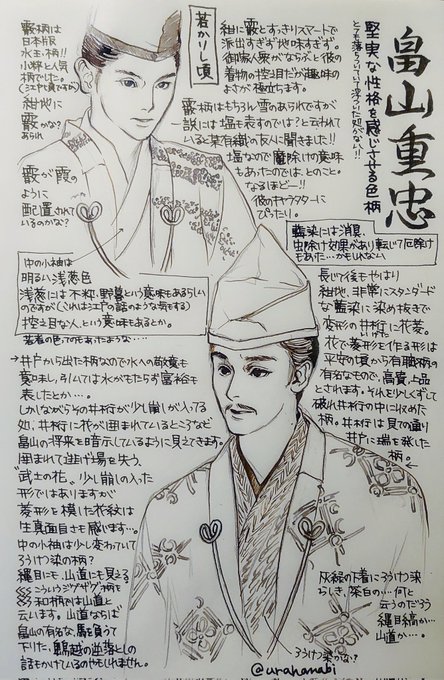 畠山重忠
堅実な性格を感じさせる色柄
とても落ちついていて浮ついた処がない!!
若かりし頃
紺に霰とすっきりスマートで
派出すぎず地味すぎず。
御家人衆がならぶと彼の
着物の控え目だが趣味の
よさが極立ちます。
霰柄はもちろん雪のあられですが
一説には塩を表すのでは?と云われて
いると染有織の友人に聞きました!!
塩なので魔除けの意味
もあったのでは、とのこと。
なるほどー!!
彼のキャラクターに
ぴったり。
霰柄は
日本版
水玉柄!!
小粋と人気
柄でした。
紺地に
霰かな?
あられ
霰が霞の
ように
配置されて
いるのかな?
中の小袖は
明るい浅葱色
浅葱には不粋、野暮という意味もあるらしい
のですが(これは江戸の話のような気する)
控え目な人、という意味もあるとか。
若者の色でもあったような…
藍染には消臭、
虫除け効果があり転じて厄除け
もあった…かもしれない
長じて後もやはり
紺地、非常にスタンダード
な藍染に染め抜きで
変形の井桁に花菱。
花で菱形を作る形は
平安の頃から有職柄の
有名なもので、高貴、上品
とされます。それを少しくずして
破れ井桁の中に収めた
柄。井桁は見ての通り
井戸に端を発した
柄。
→井戸から出た柄なので水への敬意も
意味し、引いては水がもたらす富裕も
表したとか…。
しかしながらその井桁が少し崩れが入ってる
如、井桁に花が囲まれているところなど
畠山の将来を暗示しているように見えてきます。
囲まれて逃げ場を失う、
"武士の花"、少し崩しの入った
形ではありますが
菱形を模した花紋は
生真面目さも感じます…。
中の小袖は少し変わっていて
ろうけつ染の柄?
縄目にも、山道にも見える
こういうジグザグ柄を
和柄では山道と
云います。山道ならば
畠山の有名な、馬を負うて
下りた、鵯越の逆落としの
話もかけているのやもしれません。
灰緑の下着にろうけつ染
らしき、茶白の…何と
云うのだろう
縄目縞か…
山道か…。
ろうけつ染かな?
@urahanabi